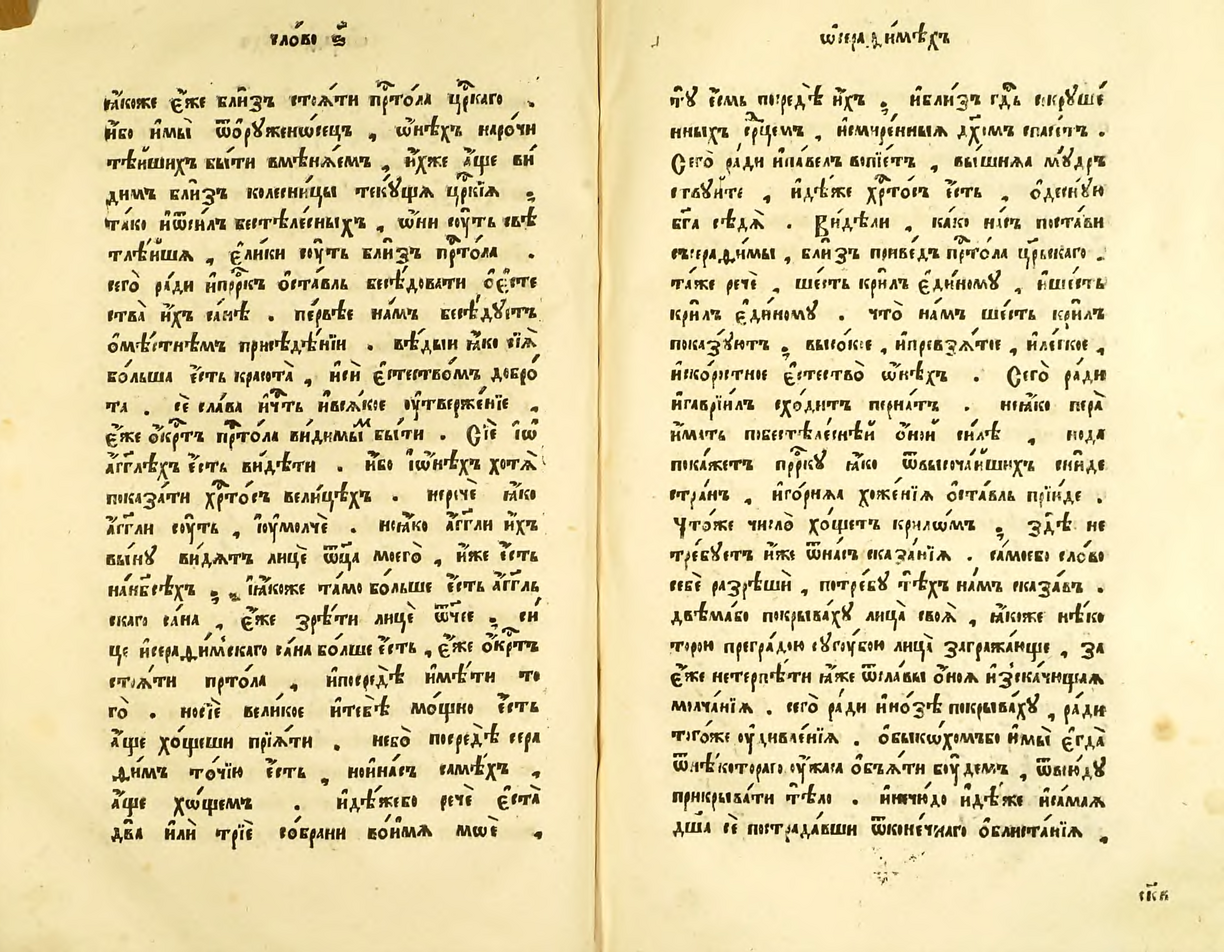 сло́во ѕ҃
ꙗ҆́коже є҆́же бли́зъ стоѧ́ти прⷭ҇то́ла црⷭ҇каго .
и҆́бо и҆мы̀ ѿѻ҆рꙋженоно́сецъ , ѡ҆нѣ́хъ наро́чи
тѣ́йшихъ бы́ти вмѣнѧ́емъ , и҆́хже а҆́ще ви́
димъ бли́зъ колесни́цы текꙋ́щѧ црⷭ҇кїѧ ,
та́ко и҆ѿси́лъ безтѣле́сныхъ , ѡ҆ни̑ сꙋ́ть свѣ
тлѣ́йшѧ , є҆ли́ки сꙋ́ть бли́зъ прⷭ҇то́ла .
сего̀ ра́ди и҆прⷪ҇ркъ ѻ҆ста́вль бесѣ́довати ѻ҆є҆сте
ства̀ и҆́хъ са́нѣ . пе́рвѣе на́мъ бесѣ́дꙋетъ
ѻ҆мѣ́стнѣмъ присѣдѣ́нїи . вѣ́дыи ꙗ҆́ко сїѧ̀
бо́льша є҆́сть красота̀ , и҆се́й є҆стество́мъ добро́
та . сѐ сла́ва и҆чⷭ҇ть и҆всѧ́кое ᲂу҆твержє́нїе ,
є҆́же ѻ҆́крⷭ҇тъ прⷭ҇то́ла ви́димымъ бы́ти . Сїѐ і҆ѡ҆
а҆́гг҃лѣхъ є҆́сть ви́дѣти . и҆́бо і҆ѡ҆нѣ́хъ хотѧ̀
показа́ти хрⷭ҇то́съ вели́цѣхъ . неречѐ ꙗ҆́ко
а҆́гг҃ли сꙋ́ть , і҆ᲂу҆молчѐ . ноꙗ҆́ко а҆́гг҃ли и҆́хъ
вы́нꙋ ви́дѧтъ лицѐ ѻ҆ц҃а̀ моего̀ , и҆́же є҆́сть
нан҃бсѣ́хъ , ꙗ҆́коже та́мо бо́льше є҆́сть а҆́гг҃ль
скаго са́на , є҆́же зрѣ́ти лицѐ ѻ҆́ч҃ее , си́
це и҆серафи́мскаго са́на бо́лше є҆́сть , є҆́же ѻ҆́крⷭ҇тъ
стоѧ́ти прⷭ҇то́ла , и҆посредѣ̀ и҆мѣ́ти то
го̀ . носїѐ вели́кое и҆тебѣ̀ мо́щно є҆́сть
а҆́ще хо́щеши прїѧ́ти . небо̀ посредѣ̀ сера
фи́мъ то́чїю є҆́сть , нои҆на́съ самѣ́хъ ,
а҆́ще хѡ́щемъ . и҆дѣ́жебо речѐ є҆ста̀
два̀ и҆лѝ трїѐ со́брани во́и҆мѧ моѐ ,
ѡ҆серафи́мѣхъ
тꙋ̀ є҆́смь посредѣ̀ и҆́хъ , и҆бли́зъ гдⷭ҇ь сокрꙋше́
нныхъ срⷣцемъ , и҆смире́нныѧ дх҃омъ спасе́тъ .
Сего̀ ра́ди и҆па́велъ вопїе́тъ , вы́шнѧѧ мꙋ́др
ствꙋйте , и҆дѣ́же хрⷭ҇то́съ є҆́сть , ѻ҆деснꙋ́ю
бг҃а сѣдѧ̀ . Ви́дѣли , ка́ко на́съ поста́ви
съсерафи́мы , бли́зъ приве́дъ прⷭ҇то́ла црⷭ҇ьскаго .
та́же речѐ , ше́сть кри́лъ є҆ди́номꙋ , и҆ше́сть
кри́лъ є҆ди́номꙋ . что̀ на́мъ ше́сть кри́лъ
показꙋ́ютъ , высо́кое , и҆превзѧ́тое , и҆ле́гкое ,
и҆ско́ростное є҆стество̀ ѡ҆нѣ́хъ . Сего̀ ра́ди
и҆гаврїи́лъ схо́дитъ перна́тъ . неꙗ҆́ко пера̀
и҆́мать побестѣле́снѣй ѻ҆́ной си́лѣ , нода
пока́жетъ прⷪ҇ркꙋ ꙗ҆́ко ѿвысоча́йшихъ сни́де
стра́нъ , и҆го́рнѧѧ хоже́нїѧ ѻ҆ста́вль прїи́де .
Что́же число̀ хо́щетъ крилѡ́мъ , здѣ̀ не
тре́бꙋетъ и҆́же ѿна́съ сказа́нїѧ . са́моебо сло́во
себѐ разрѣшѝ , потре́бꙋ тѣ́хъ на́мъ сказа́въ .
двѣ́мабо покрыва́хꙋ лица̀ своѧ̀ , ꙗ҆́коже нѣ́ко
торою прегра́дою сꙋгꙋ́бою лица̀ загража́юще , за
є҆́же нетерпѣ́ти ꙗ҆́же ѿсла́вы ѻ҆́ноѧ и҆зскача́ющаѧ
молча́нїѧ . сего̀ ра́ди и҆но́зѣ покрыва́хꙋ , ра́ди
тогоже ᲂу҆дивле́нїѧ . ѻ҆быко́хомъбо и҆мы̀ є҆гда̀
ѿнѣ́котораго ᲂу҆́жаса ѻ҆б̾ѧ́ти бꙋ́демъ , ѿвсю́дꙋ
прикрыва́ти тѣ́ло . и҆нечю́до и҆дѣ́же и҆са́маѧ
дш҃а̀ сѐ пострада́вши ѿконе́чнаго ѻ҆блиста́нїѧ ,